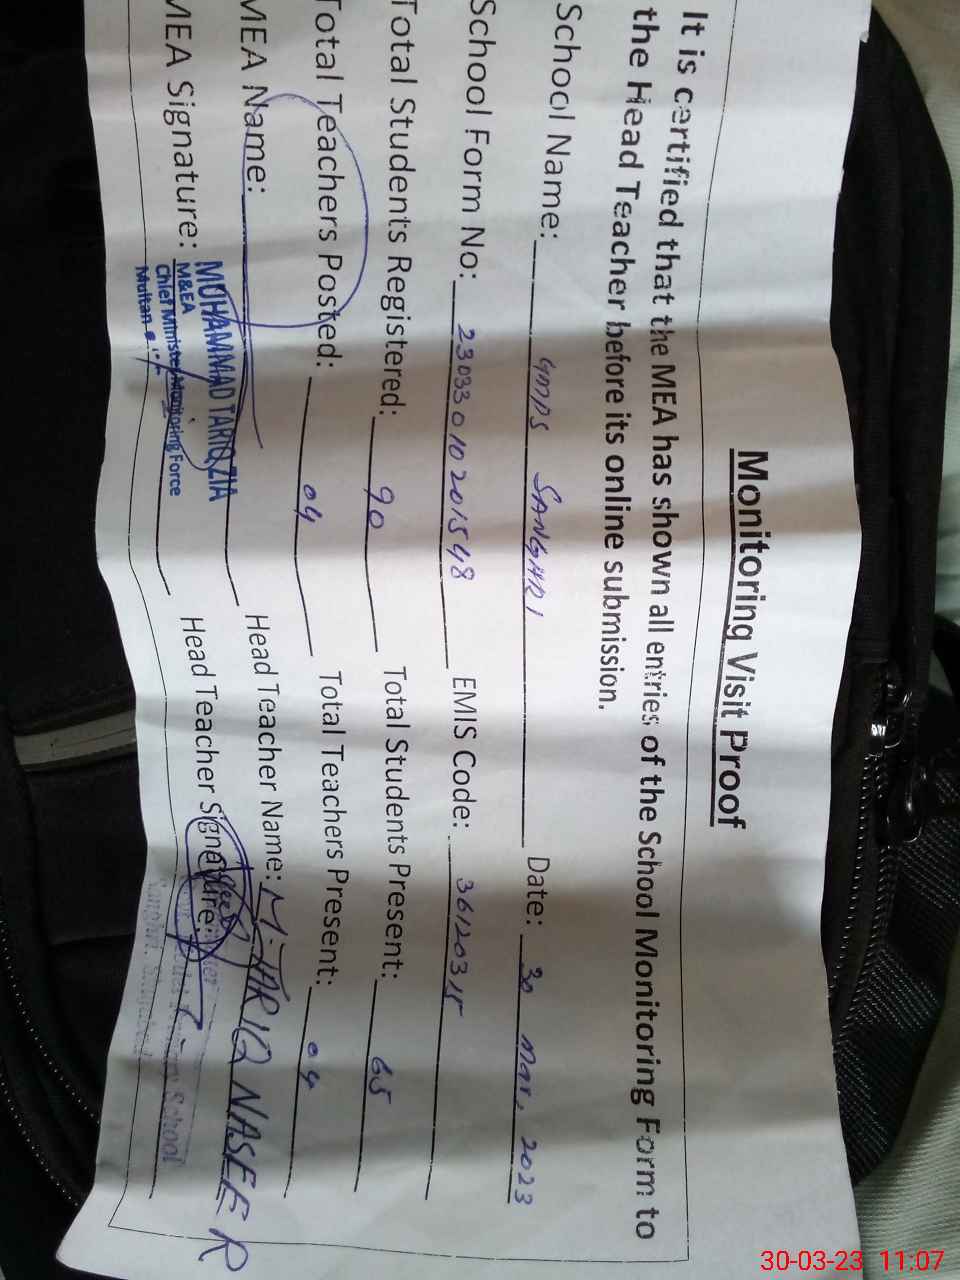 Monitoring Visit Proof
It is certified that the MEA has shown all entries of the School Monitoring Form to
the Head Teacher before its online submission.
School Name: GMPS SANGHRI Date: 30 Mar, 2023
School Form No: 23033010201548 EMIS Code: 36120315
Total Students Registered: 90 Total Students Present: 65
Total Teachers Posted: 04 Total Teachers Present: 04
MEA Name: Head Teacher Name: M. TARIQ NASEER
MUHAMMAD TARIQ ZIA
MEA Signature: Head Teacher Signature:
M&EA
Chief Minister Monitoring Force
Multan
School
30-03-23 11:07